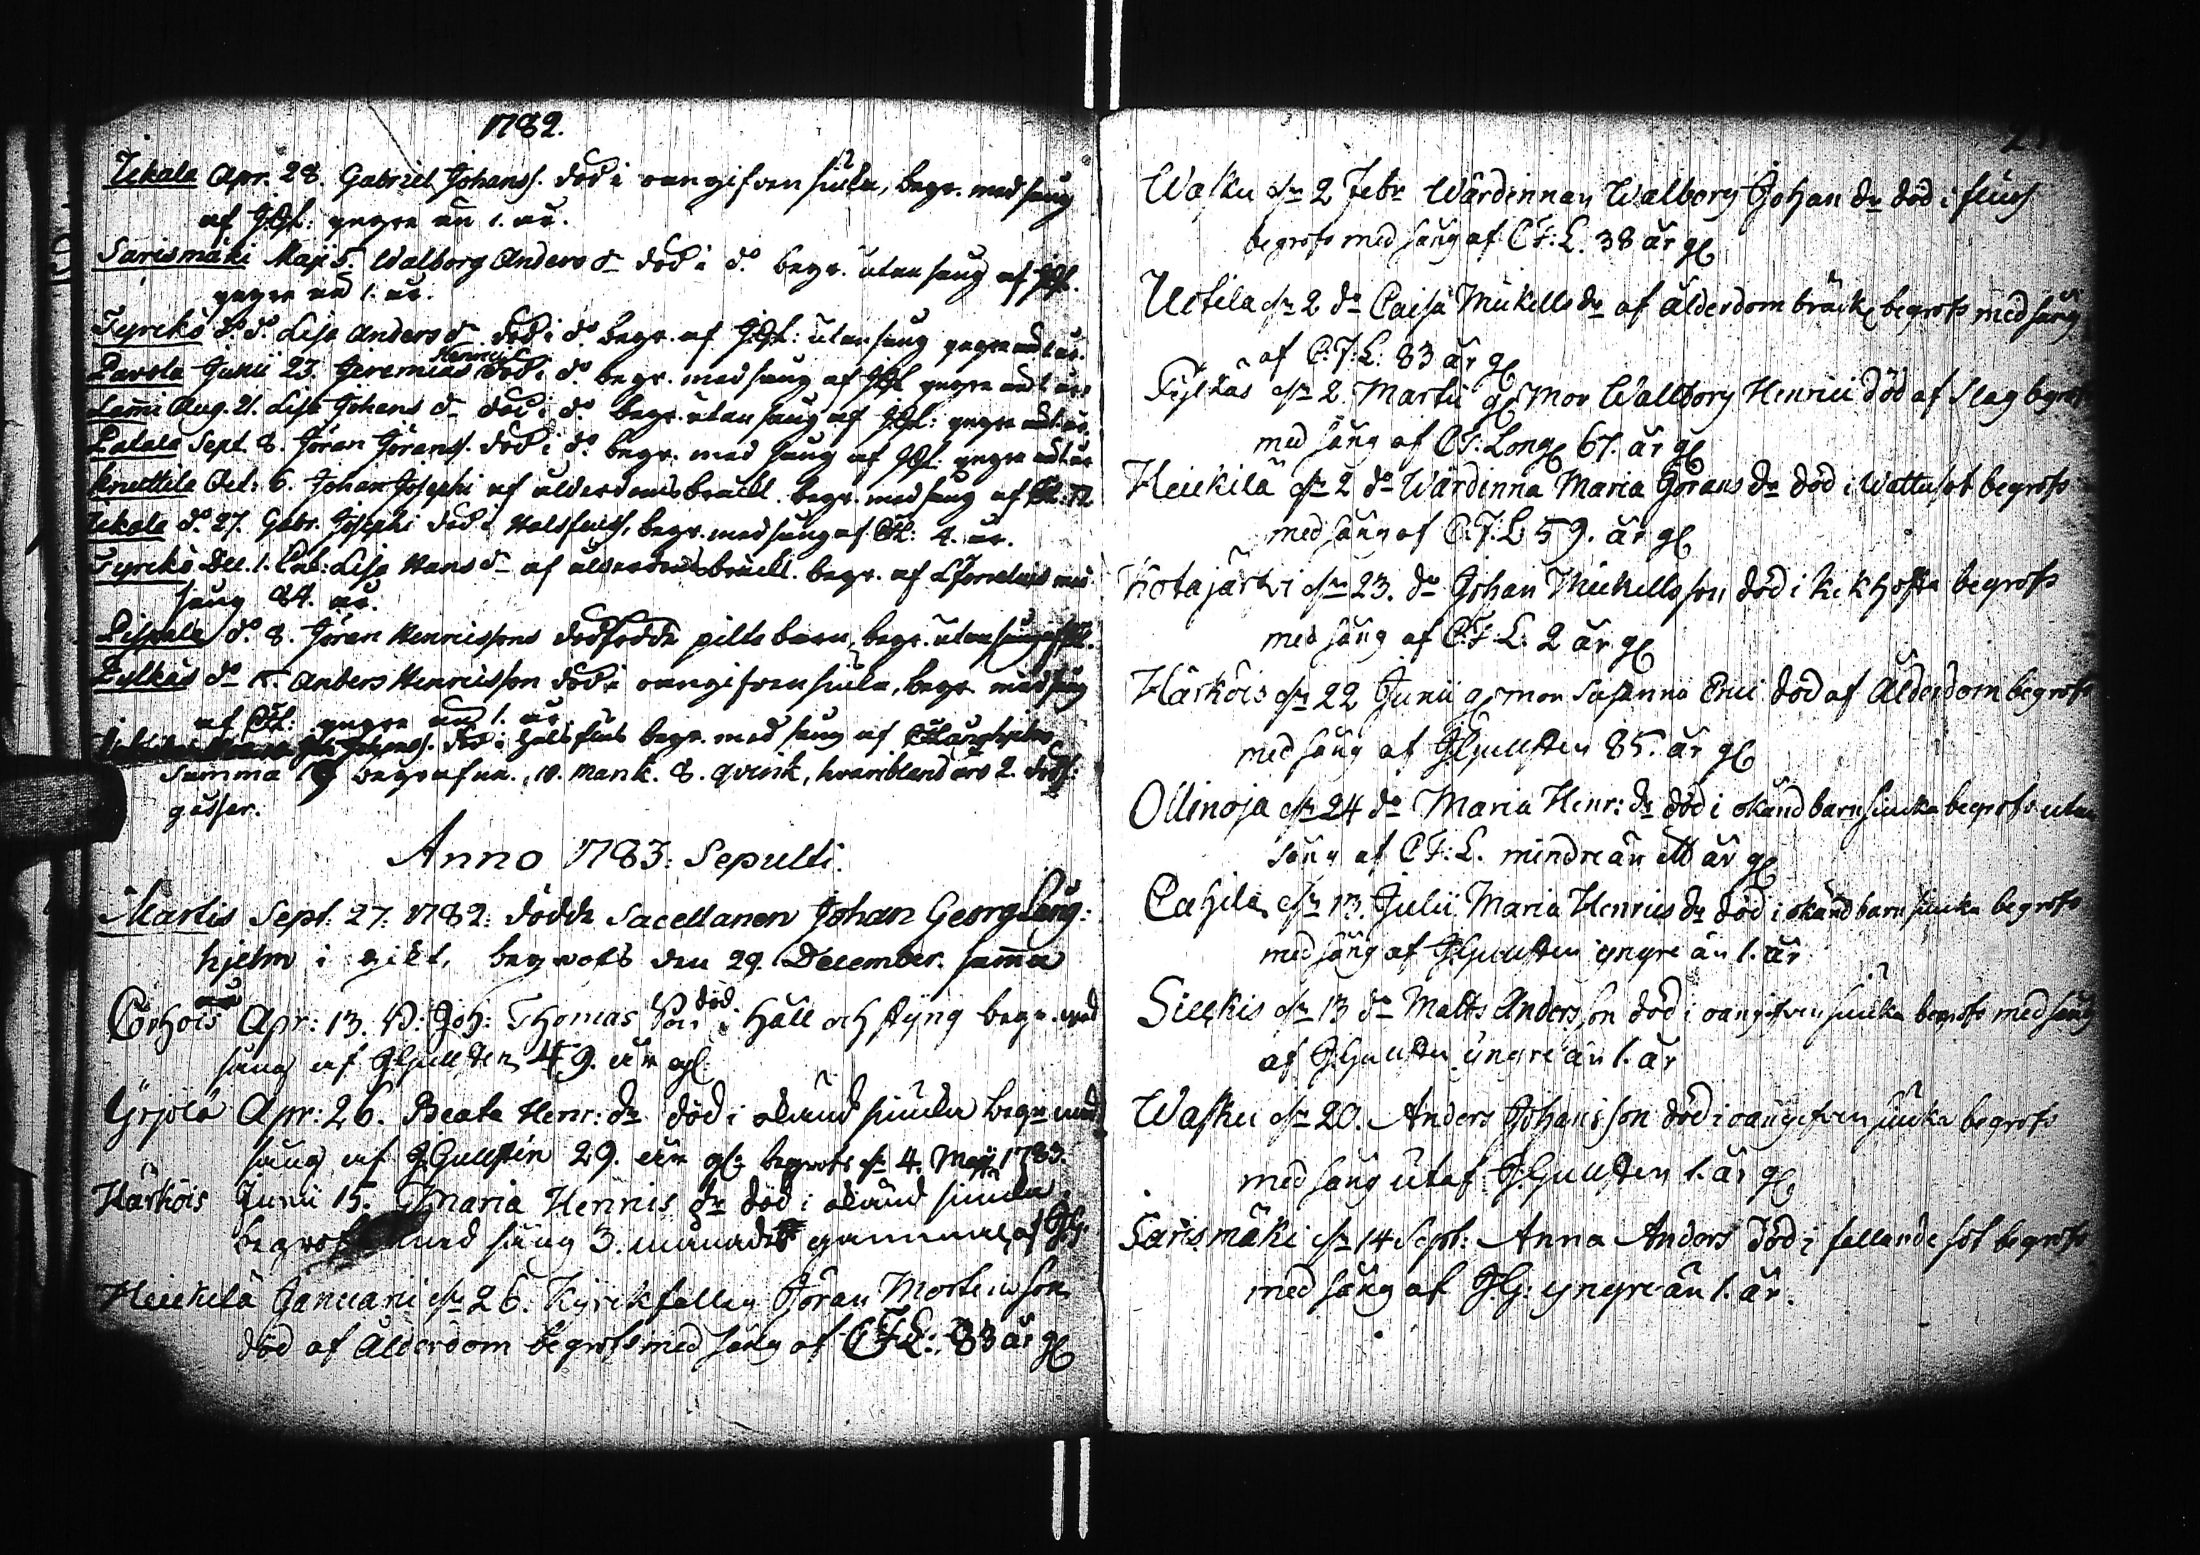 1782.
Iekala Apr. 28. Gabriel Johanss. död i oangifven siuka, begr. med sång
af JGt: yngre än 1. år.
Sarismäki Maji 5. Walborg Anders dr död i do begr. utan sång af JGt.
yngre än 1. år.
Tyrckö do do Lisa Anders dr död i do begr. af JGt: utan sång yngre än 1 år.
Henrici
Parola Junii 23. Jeremias död i do begr. med sång af JGt yngre än 1 år
Lami Aug. 21. Lisa Johans dr död i do begr. utan sång af JGt: yngre än 1. år.
Latala Sept. 8. Jöran Jöranss. död i do begr. med sång af JGt: yngre än 1 år
Knuttila Oct: 6. Johan Josephi af ålderdomsbräckl. begr. med sång af CFL. 72
Iekala do 27. Gabr. Josephi död i Halsfluss, begr. med sång af CFL: 4. år.
Tyrckö Dec. 1. Enk: Lisa Hans dr af ålderdomsbräckl. begr. af med
sång 84. år.
do 8. Jöran Henricssons dödfödde piltebarn, begr. utan sång af
Pylkäs do Anders Henricsson död i oangifven siuka, begr. med sång
af CFL: yngre än 1. år.
död i Halsfluss begr. med sång af CFLaunghielm
Summa 19 begrafne, 10. mank. 8. qvink, hvaribland äro 2. dödf:
gåsser.
Anno 1783: Sepulti.
Martis Sept: 27: 1782: dödde Sacellanen Johan Georg Laug:
hjelm i gikt, begrofs den 29. December. samma
Corhois Apr: 13. B: Joh: Thomas Son död i Håll och styng begr. med
sång af JGuusten 49. år gl.
Yrjölä Apr: 26. Beata Henr: dr död i okänd siuka begr med
sång af JGuustén 29. år gl: begrofs dn 4. Maji 1783.
Härköis Junii 15. Maria Henrics dr död i okänd siuka
begrofs med sång 3. månader gammal af JG.
Heickilä Januarii dn 26. Kyrckfallen Jöran Mortenson
död af Ålderdom begrofs med sång af CFL: 83 år gl
Wasku dn 2 Febr Wärdinnan Walborg Johan dr död i fluss
begrofs med sång af CF:L. 38 år gl
Uotila dn 2 do Caisa Mickells dr af ålderdom bräckl begrofs med sång
af C.F:L: 83 år gl
Pylkäs dn 2 Martii gl Mor Wallborg Henrici död af Slag begrofs
med sång af CF: Long 67. år gl
Heickilä dn 2 do Wärdinna Maria Görans dr död i Wattusot begrofs
med sång af C.F:L 59. år gl
Kotajärwi dn 23. do Johan Mickellsson död i Kikhosta begrofs
med sång af C.F.L: 2 år gl
Härköis dn 22 Junii gl mor Susanna Erici död af Ålderdom begrofs
med sång af JGuusten 85. år gl
Ollinoja dn 24 do Maria Henr: dr död i okänd barnsiucka begrofs utan
sång af CF:L. mindre än ett år gl
Cahila dn 13. Julii Maria Henrics dr död i okänd barnsiucka begrofs
med sång af JGuusten yngre än 1. år
Sieckis dn 13 do Matts Andersson död i oangifven siucka begrofs med sång
af JGuusten yngre än 1. år
Wasku dn 20. Anders Johansson död i oangifven siucka begrofs
med sång utaf JGuusten 1. år gl
Sarismäki dn 14 Sept: Anna Anders död i fallande sot begrofs
med sång af JG: yngre än 1. år.